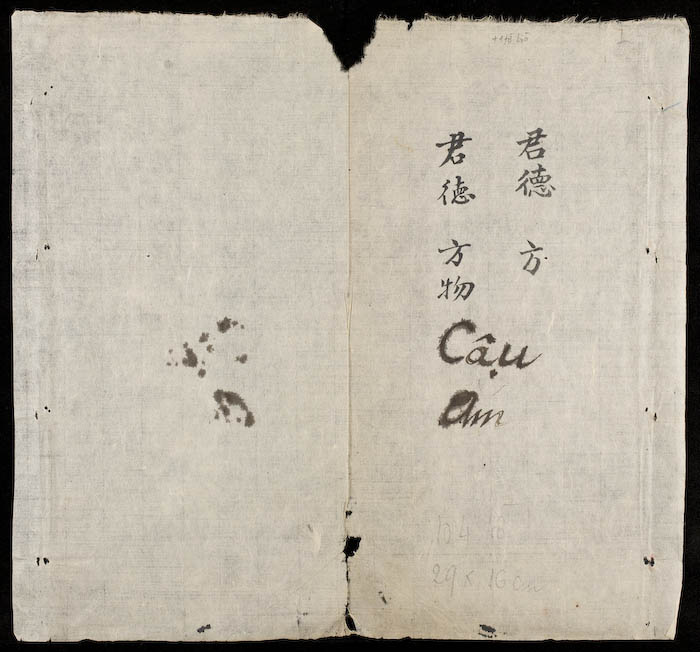 君德 方
君德 方物
Cậu
ấm
29 x 16 cm